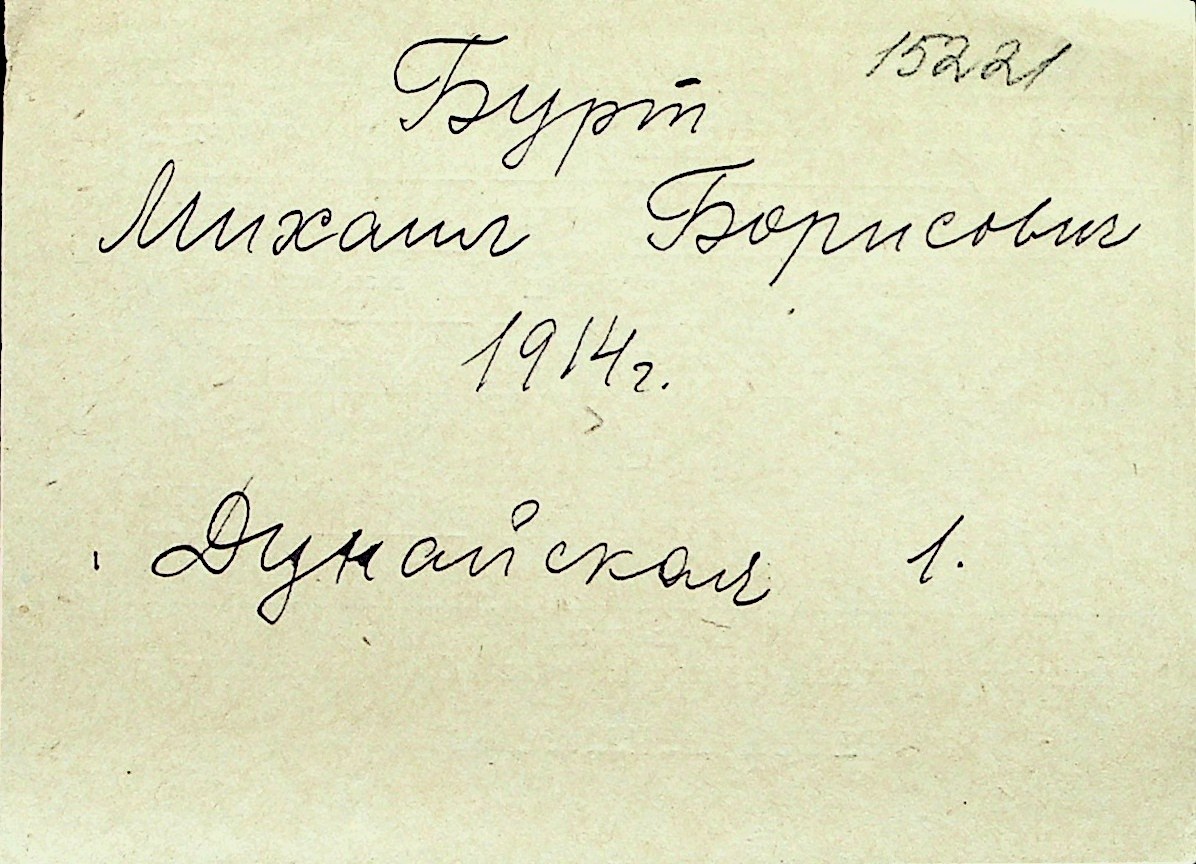 15221
Бурт
Михаил Борисович
1914г.
Дунайская 1.